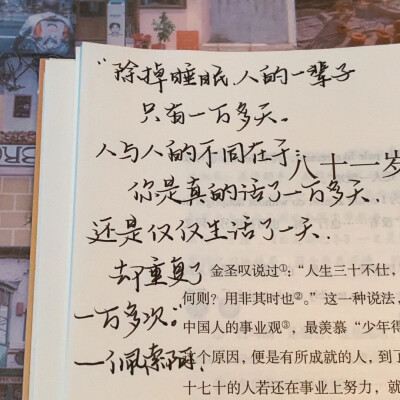 "除掉睡眠,人的一辈子
只有一万多天。
人与人的不同在于:
你是真的活了一万多天,
还是仅仅生活了一天,
却重复了
一万多次。"
——佩索阿.
八十一岁
金圣叹说过①:"人生三十不仕,
何则?用非其时也②。"这一种说法,
中国人的事业观③,最羡慕"少年得
个原因,便是有所成就的人,到了
十七十的人若还在事业上努力,就